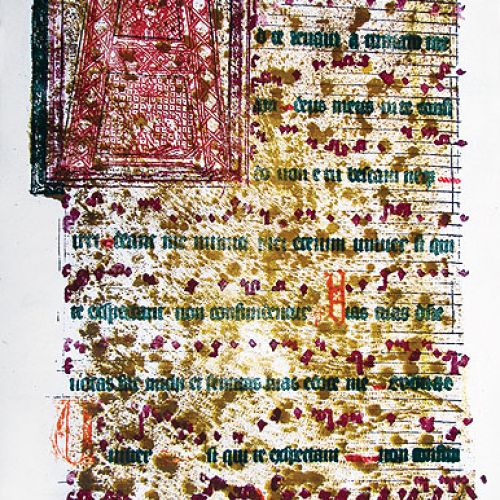 d te leuaui a nimam me
am deus meus in te confi
non e ru bescam neqz
irri deant me inimici mei etenim univer si qui
te expectant non confundentur Uias tuas dñe
notas fac michi et semitas tuas edoce me euouae
Univer si qui te expectant non confun